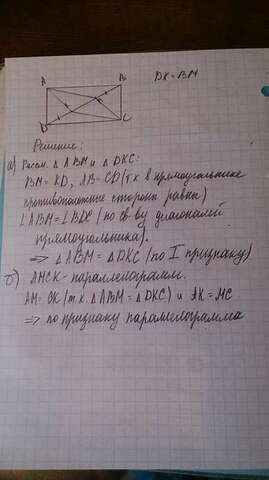 A B DK = BM
D C
Решение:
а) Рассм. △ABM и △DKC:
BM = KD, AB = CD (т.к в прямоугольнике
противоположные стороны равны)
∠ABM = ∠BDC (по св-ву диагоналей
прямоугольника).
⇒ △ABM = △DKC (по I признаку)
б) AMCK - параллелограмм.
AM = CK (т.к. △ABM = △DKC) и AK = MC
⇒ по признаку параллелограмма